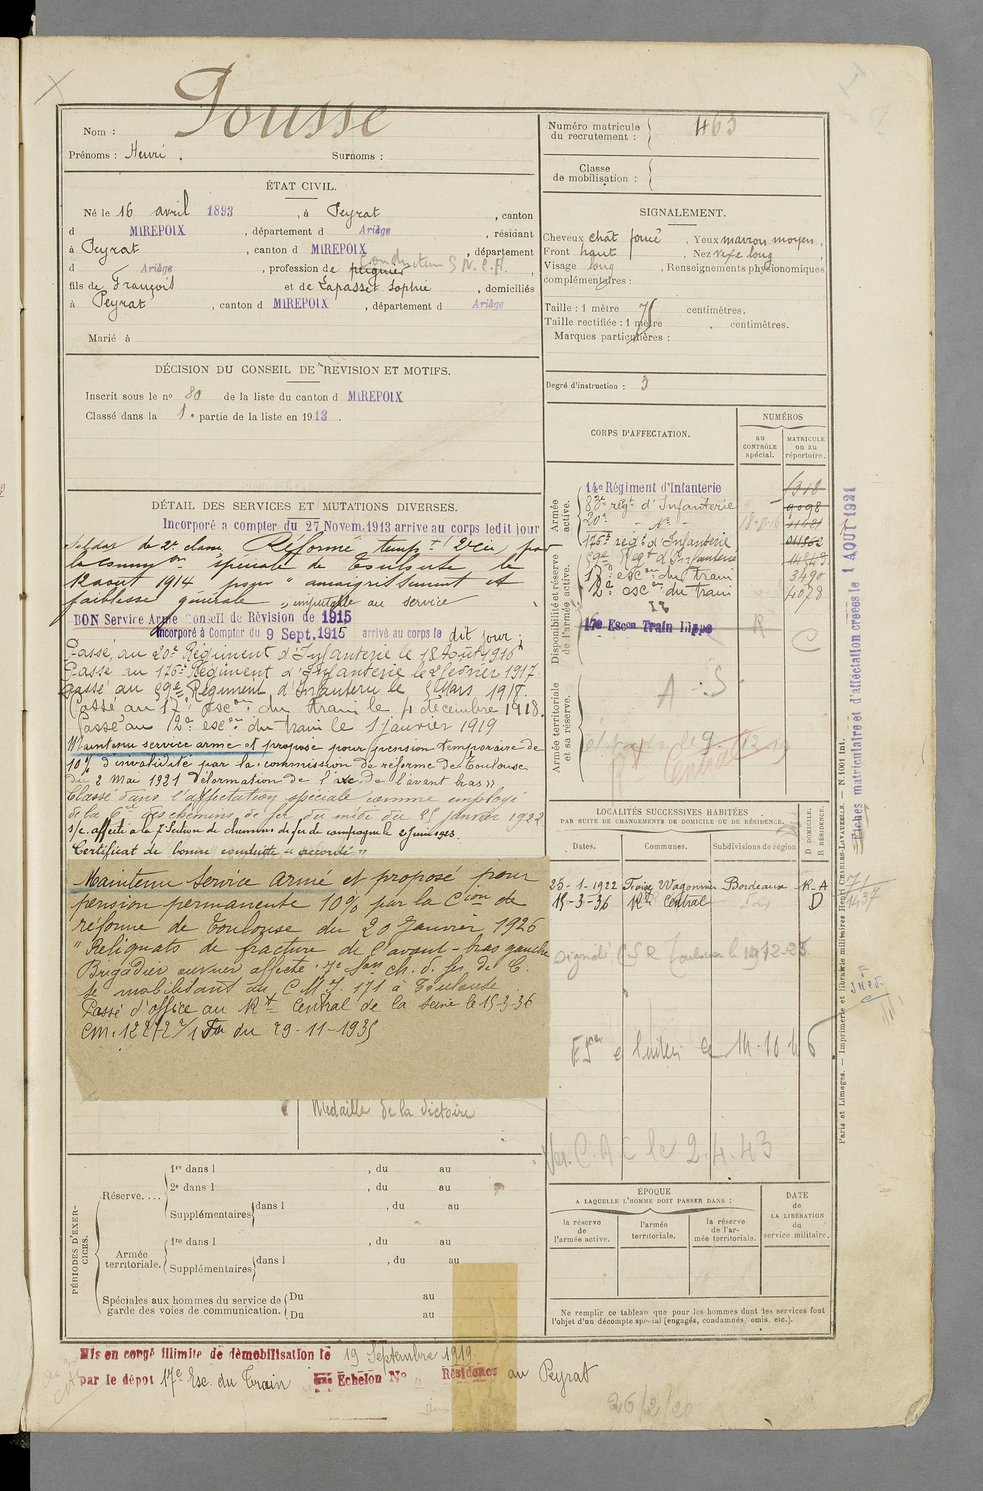 Pousse
Nom :
Prénoms : Henri . Surnoms :
ÉTAT CIVIL.
Né le 16 avril 1893 , à Peyrat , canton
d MIREPOIX , département d Ariège , résidant
à Peyrat , canton d MIREPOIX , département
conducteur S.N.C.F.
d Ariège , profession de peignier ,
fils de François et de Lapasset Sophie , domiciliés
à Peyrat , canton d MIREPOIX , département d Ariège
Marié à
DÉCISION DU CONSEIL DE RÉVISION ET MOTIFS.
Inscrit sous le no 80 de la liste du canton d MIREPOIX
Classé dans la 1e partie de la liste en 1913 .
DÉTAIL DES SERVICES ET MUTATIONS DIVERSES.
Incorporé a compter du 27 Novem. 1913 arrive au corps ledit jour
Soldat de 2e classe Réformé temp+ 2e Cie par
la Comm on spéciale de Toulouse le
12 aout 1914 pour " amaigrissement et
faiblesse générale " imputable au service
BON Service Armé Conseil de Révision de 1915
Incorporé à Compter du 9 Sept. 1915 arrivé au corps le dit jour ;
Passé au 20e Régiment d'Infanterie le 18 Août 1916
Passé au 175e Régiment d'Infanterie le 2 février 1917
passé au 99e Régiment d'Infanterie le 5 Mars 1918
Passé au 17e esc on du train le 4 décembre 1918.
Passé au 12e esc on du train le 1 janvier 1919
Maintenu service armé et proposé pour pension temporaire de
10% d'invalidité par la commission de réforme de Toulouse
du 2 Mai 1921 "déformation de l'axe de l'avant bras"
Classé dans l'affectation spéciale comme employé
de la Cie des chemins de fer du midi du 25 janvier 1922
s/c. affecté à la 7 Section de chemins de fer de campagne le 2 juin 1923.
Certificat de bonne conduite "accordé"
Maintenu service armé et proposé pour
pension permanente 10% par la Cion de
réforme de Toulouse du 20 Janvier 1926
" Reliquats de fracture de l'avant-bras gauche
Brigadier ouvrier affecté 7e Son ch. d. fer de C.
se mobilisant au C M J. 171 à Toulouse
Passé d'office au Rt Central de la Seine le 15-3-36
CM. 12272 2/1 du 29-11-1935
Médaille de la Victoire
PÉRIODES D'EXERCICES.
Réserve....
1re dans l , du au
2e dans l , du au
Supplémentaires dans l , du au
Armée territoriale.
1re dans l , du au
Supplémentaires dans l , du au
Spéciales aux hommes du service de garde des voies de communication.
Du au
Du au
Mis en congé illimité de démobilisation le 19 Septembre 1919
par le dépôt 17e Esc. du Train Echelon No Résidence au Peyrat
26/2/20
Numéro matricule du recrutement : 463
Classe de mobilisation :
SIGNALEMENT.
Cheveux chât foncé , Yeux marron moyen ,
Front haut , Nez vexe long
Visage long , Renseignements physionomiques
complémentaires :
Taille : 1 mètre 75 centimètres.
Taille rectifiée : 1 mètre , centimètres.
Marques particulières :
Degré d'instruction : 3
CORPS D'AFFECTATION.
NUMÉROS
au CONTRÔLE spécial.
MATRICULE ou au répertoire.
Armée active.
14e Régiment d'Infanterie
83e régt d'Infanterie 9098
20e - No - 18-8-16
175e régt d'Infanterie
99e Régt d'Infanterie
17e esc on du train 3490
12e esc on du train 4078
Disponibilité et réserve de l'armée active.
17e Escon Train Hippo R C
Armée territoriale et sa réserve.
A S
Central
LOCALITÉS SUCCESSIVES HABITÉES
PAR SUITE DE CHANGEMENTS DE DOMICILE OU DE RÉSIDENCE.
Dates. Communes. Subdivisions de région
D DOMICILE. R RÉSIDENCE.
25-1-1922 Foix, Wagonnier Bordeaux R-A
15-3-36 Rt Central D
Signalé C S R Toulouse le
14-10 46
C.A C le 2.4.43
ÉPOQUE
A LAQUELLE L'HOMME DOIT PASSER DANS :
la réserve de l'armée active.
l'armée territoriale.
la réserve de l'armée territoriale.
DATE de LA LIBÉRATION du service militaire.
Ne remplir ce tableau que pour les hommes dont les services font
l'objet d'un décompte spécial (engagés, condamnés, omis, etc.).
Fiches matriculaire et d'affectation créées le 1 AOUT 1921
Paris et Limoges. — Imprimerie et librairie militaires Henri CHARLES-LAVAUZELLE. — N. 1001 int.